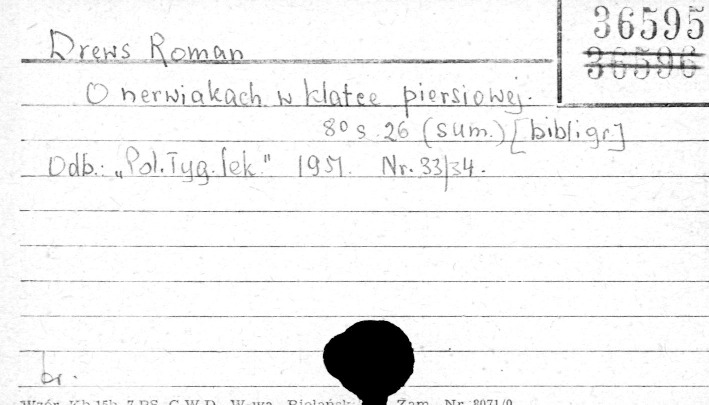 36595
36596
Drews Roman
O nerwiakach w klatce piersiowej.
8° s. 26 (sum.) [bibligr.]
Odb.: „Pol. Tyg. lek." 1951. Nr. 33/34.
br.
Wzór Kb 15b 7 PS G.W.D. W-wa, Bielańsk Zam. Nr 8071/0